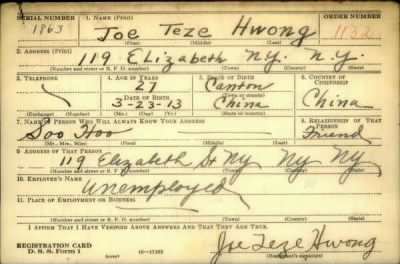 SERIAL NUMBER 1. NAME (Print) ORDER NUMBER
1863 Joe Teze Hwong 1132
(First) (Middle) (Last)
2. ADDRESS (Print)
119 Elizabeth N.Y. N.Y.
(Number and street or R. F. D. number) (Town) (County) (State)
3. TELEPHONE 4. AGE IN YEARS 5. PLACE OF BIRTH 6. COUNTRY OF CITIZENSHIP
27 Canton
DATE OF BIRTH (Town or county)
3-23-13 China China
(Exchange) (Number) (Mo.) (Day) (Yr.) (State or country)
7. NAME OF PERSON WHO WILL ALWAYS KNOW YOUR ADDRESS 8. RELATIONSHIP OF THAT PERSON
Soo Hoo Friend
(Mr., Mrs., Miss) (First) (Middle) (Last)
9. ADDRESS OF THAT PERSON
119 Elizabeth St NY NY NY
(Number and street or R. F. D. number) (Town) (County) (State)
10. EMPLOYER'S NAME
Unemployed
11. PLACE OF EMPLOYMENT OR BUSINESS
(Number and street or R. F. D. number) (Town) (County) (State)
I AFFIRM THAT I HAVE VERIFIED ABOVE ANSWERS AND THAT THEY ARE TRUE.
REGISTRATION CARD
D. S. S. Form 1 (over) Joe Teze Hwong
(Registrant's signature)